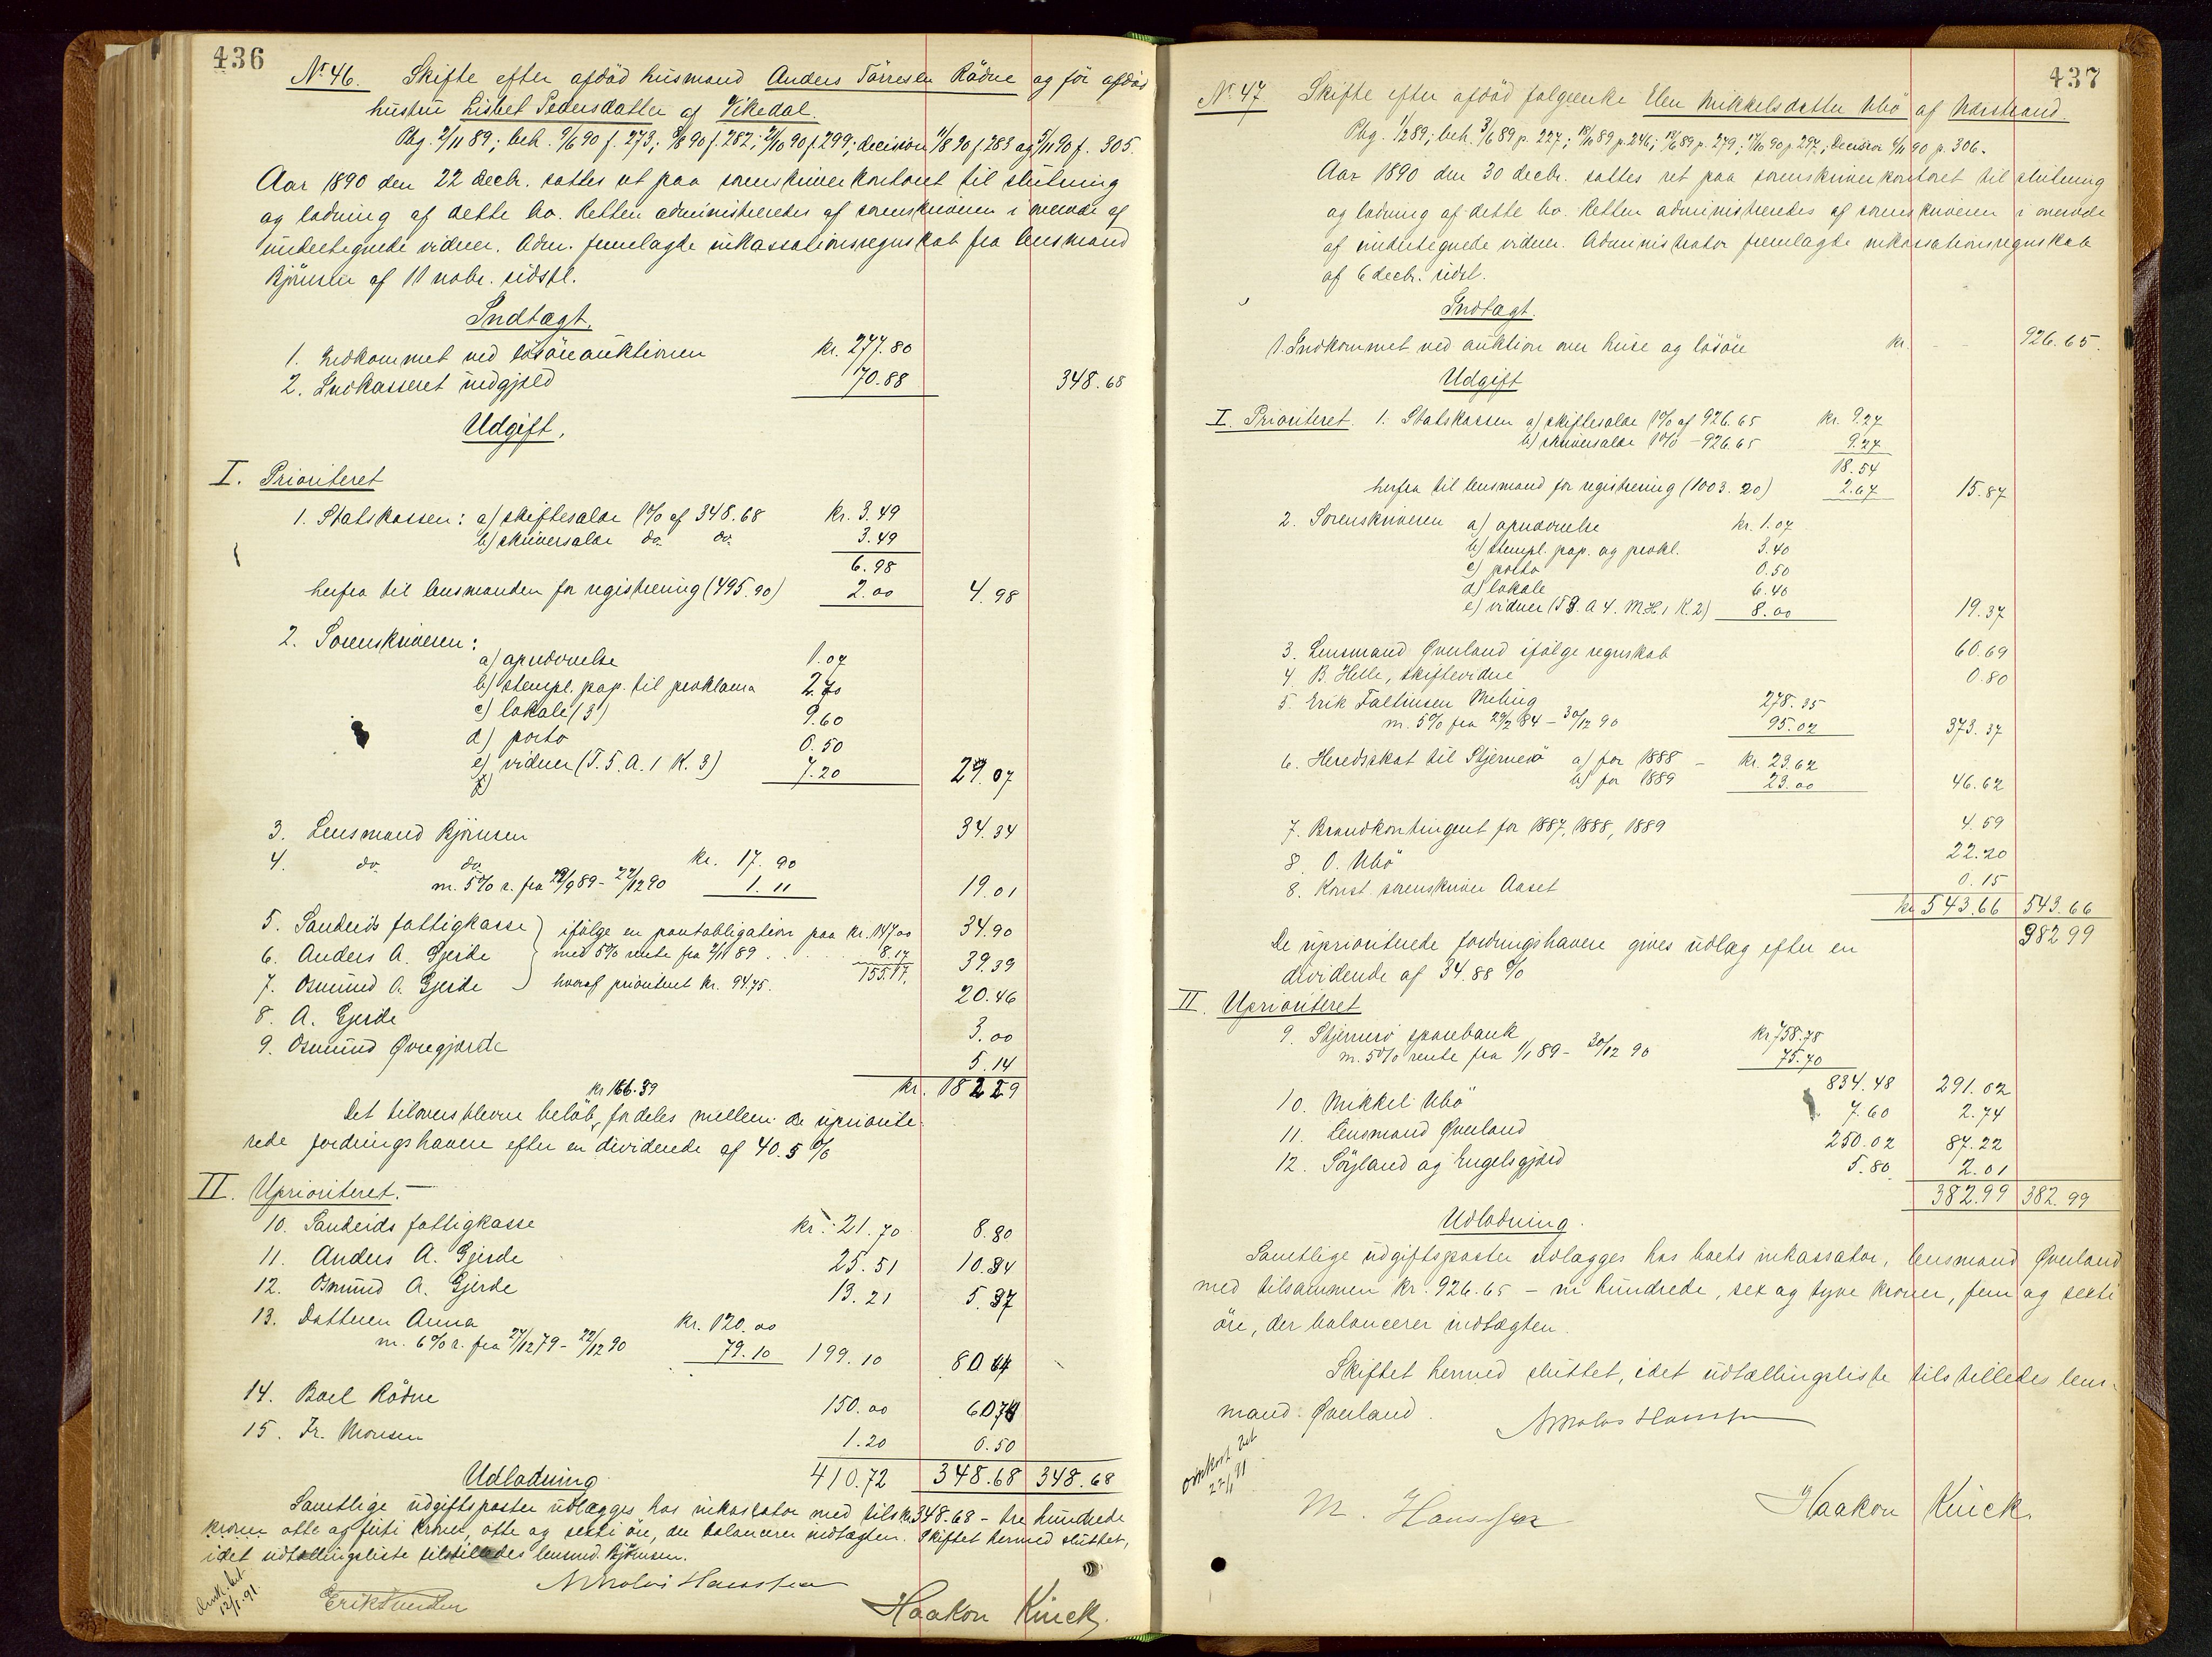 436
No 46. Skifte efter afdöd husmand Anders Törresen Rödne og för afdöd
hustru Lisbet Pedersdatter af Vikedal.
Pbg. 2/11 89; beh. 9/6 90 f. 273; 90 f. 282; 90 f. 299; decision 11/8 90 f. 283 og 5/11 90 f. 305.
Aar 1890 den 22 decbr. sattes ret paa sorenskriverkontoret til slutning
og lodning af dette bo. Retten administreredes af sorenskriveren i overvær af
undertegnede vidner. Adm. fremlagde inkassationsregnskab fra lensmand
Björnsen af 11 nobr. sidstl.
Indtægt.
1. Indkommet ved lösöreauktionen kr. 277.80
2. Indkasseret udgjæld 70.88 348.68
Udgift.
I. Prioriteret
1. Statskassen: a) skiftesalær 1% af 348.68 kr. 3.49
b) skriversalær do. do. 3.49
6.98
herfra til lensmanden for registrering (495.90) 2.00 4.98
2. Sorenskriveren:
a) aprudovelse 1.07
b) stempl. pap. til proklama 2.70
c) lokale (3) 9.60
d) porto 0.50
e) vidner (T. 5. A. 1 K. 3) 7.20 29.07
f)
3. Lensmand Björnsen 34.34
4. do. do. kr. 17.90
m. 5% r. fra 29/9 89 - 22/12 90 1.11 19.01
5. Sandeids fattigkasse ifölge en pantobligation paa kr. 147.00 34.90
6. Anders A. Gjerde med 5% rente fra 2/11 89 . . . . 8.17 39.39
7. Osmund A. Gjerde hvoraf prioriteret kr. 94.75. 155.17. 20.46
8. A. Gjerde 3.00
9. Osmund Øvregjærde 5.14
kr. 182.29
kr 166.39
Det tiloversblevne belöb fordeles mellem de upriorite-
rede fordringshavere efter en dividende af 40.5 %
II. Uprioriteret. —
10. Sandeids fattigkasse kr. 21.70 8.80
11. Anders A. Gjerde 25.51 10.34
12. Osmund A. Gjerde 13.21 5.37
13. Datteren Anna kr. 120.00
m. 6% r. fra 27/12 79 - 22/12 90 79.10 199.10 80.64
14. Boel Rödne 150.00 60.74
15. Fr. Monsen 1.20 0.50
Udlodning 410.72 348.68 348.68
Samtlige udgiftsposter udlægges hos inkassator med tils. kr 348.68 - tre hundrede
kroner otte og firti kroner, otte og sexti öre, der balancerer indtægten. Skiftet hermed sluttet,
idet udtællingsliste tilstilledes lensmd. Björnsen.
12/1 91.
Nikolai Hanssen
Haakon Kinck.
437
No 47 Skifte efter afdöd fölgeenke Elen Mikkelsdatter Ubö af Nærstrand.
Pbg. 1/2 89; beh. 3/6 89 p. 227; 89 p. 246; 89 p. 279; 90 p. 297; decision 6/11 90 p. 306.
Aar 1890 den 30 decbr. sattes ret paa sorenskriverkontoret til slutning
og lodning af dette bo. Retten administreredes af sorenskriveren i overvær
af undertegnede vidner. Administrator fremlagde inkassationsregnskab
af 6 decbr. sidstl.
Indtægt.
1. Indkommet ved auktion over huse og lösöre kr. - - 926.65.
Udgift
I. Prioriteret. 1. Statskassen a) skiftesalær 1% af 926.65 kr. 9.27
b) skriversalær 1% - 926.65 9.27
18.54
herfra til lensmand for registrering (1003.20) 2.67 15.87
2. Sorenskriveren a) aprudovelse kr. 1.07
b) stempl. pap. og prokl. 3.40
c) porto 0.50
d) lokale 6.40
e) vidner (T 3. A 4. M.H. 1 K. 2) 8.00 19.37
3. Lensmand Øverland ifölge regnskab 60.69
4. B. Helle, skiftevidne 0.80
5. Erik Faltinsen Meling 278.35
m. 5% fra 29/2 84 - 30/12 90 95.02 373.37
6. Heredsskat til Stjernerö a) for 1888 - kr. 23.62
b) for 1889 23.00 46.62
7. Brandkontingent for 1887, 1888, 1889 4.59
8. O. Ubö 22.20
8. Konst. sorenskriver Aaset 0.15
kr 543.66 543.66
382.99
De uprioriterede fordringshavere gives udlæg efter en
dividende af 34.88 %
II. Uprioriteret
9. Stjernerö sparebank kr. 758.78
m. 5% rente fra 1/1 89 - 30/12 90 75.70
834.48 291.02
10. Mikkel Ubö 7.60 2.74
11. Lensmand Øverland 250.02 87.22
12. Söyland og Engelsgjærd 5.80 2.01
382.99 382.99
Udlodning.
Samtlige udgiftsposter udlægges hos boets inkassator, lensmand Øverland
med tilsammen kr. 926.65 - ni hundrede, sex og tyve kroner, fem og sexti
öre, der balancerer indtægten.
Skiftet hermed sluttet, idet udtællingsliste tilstilledes lens-
mand Øverland.
Nikolai Hanssen
22/1 91
M. Hanssen
Haakon Kinck